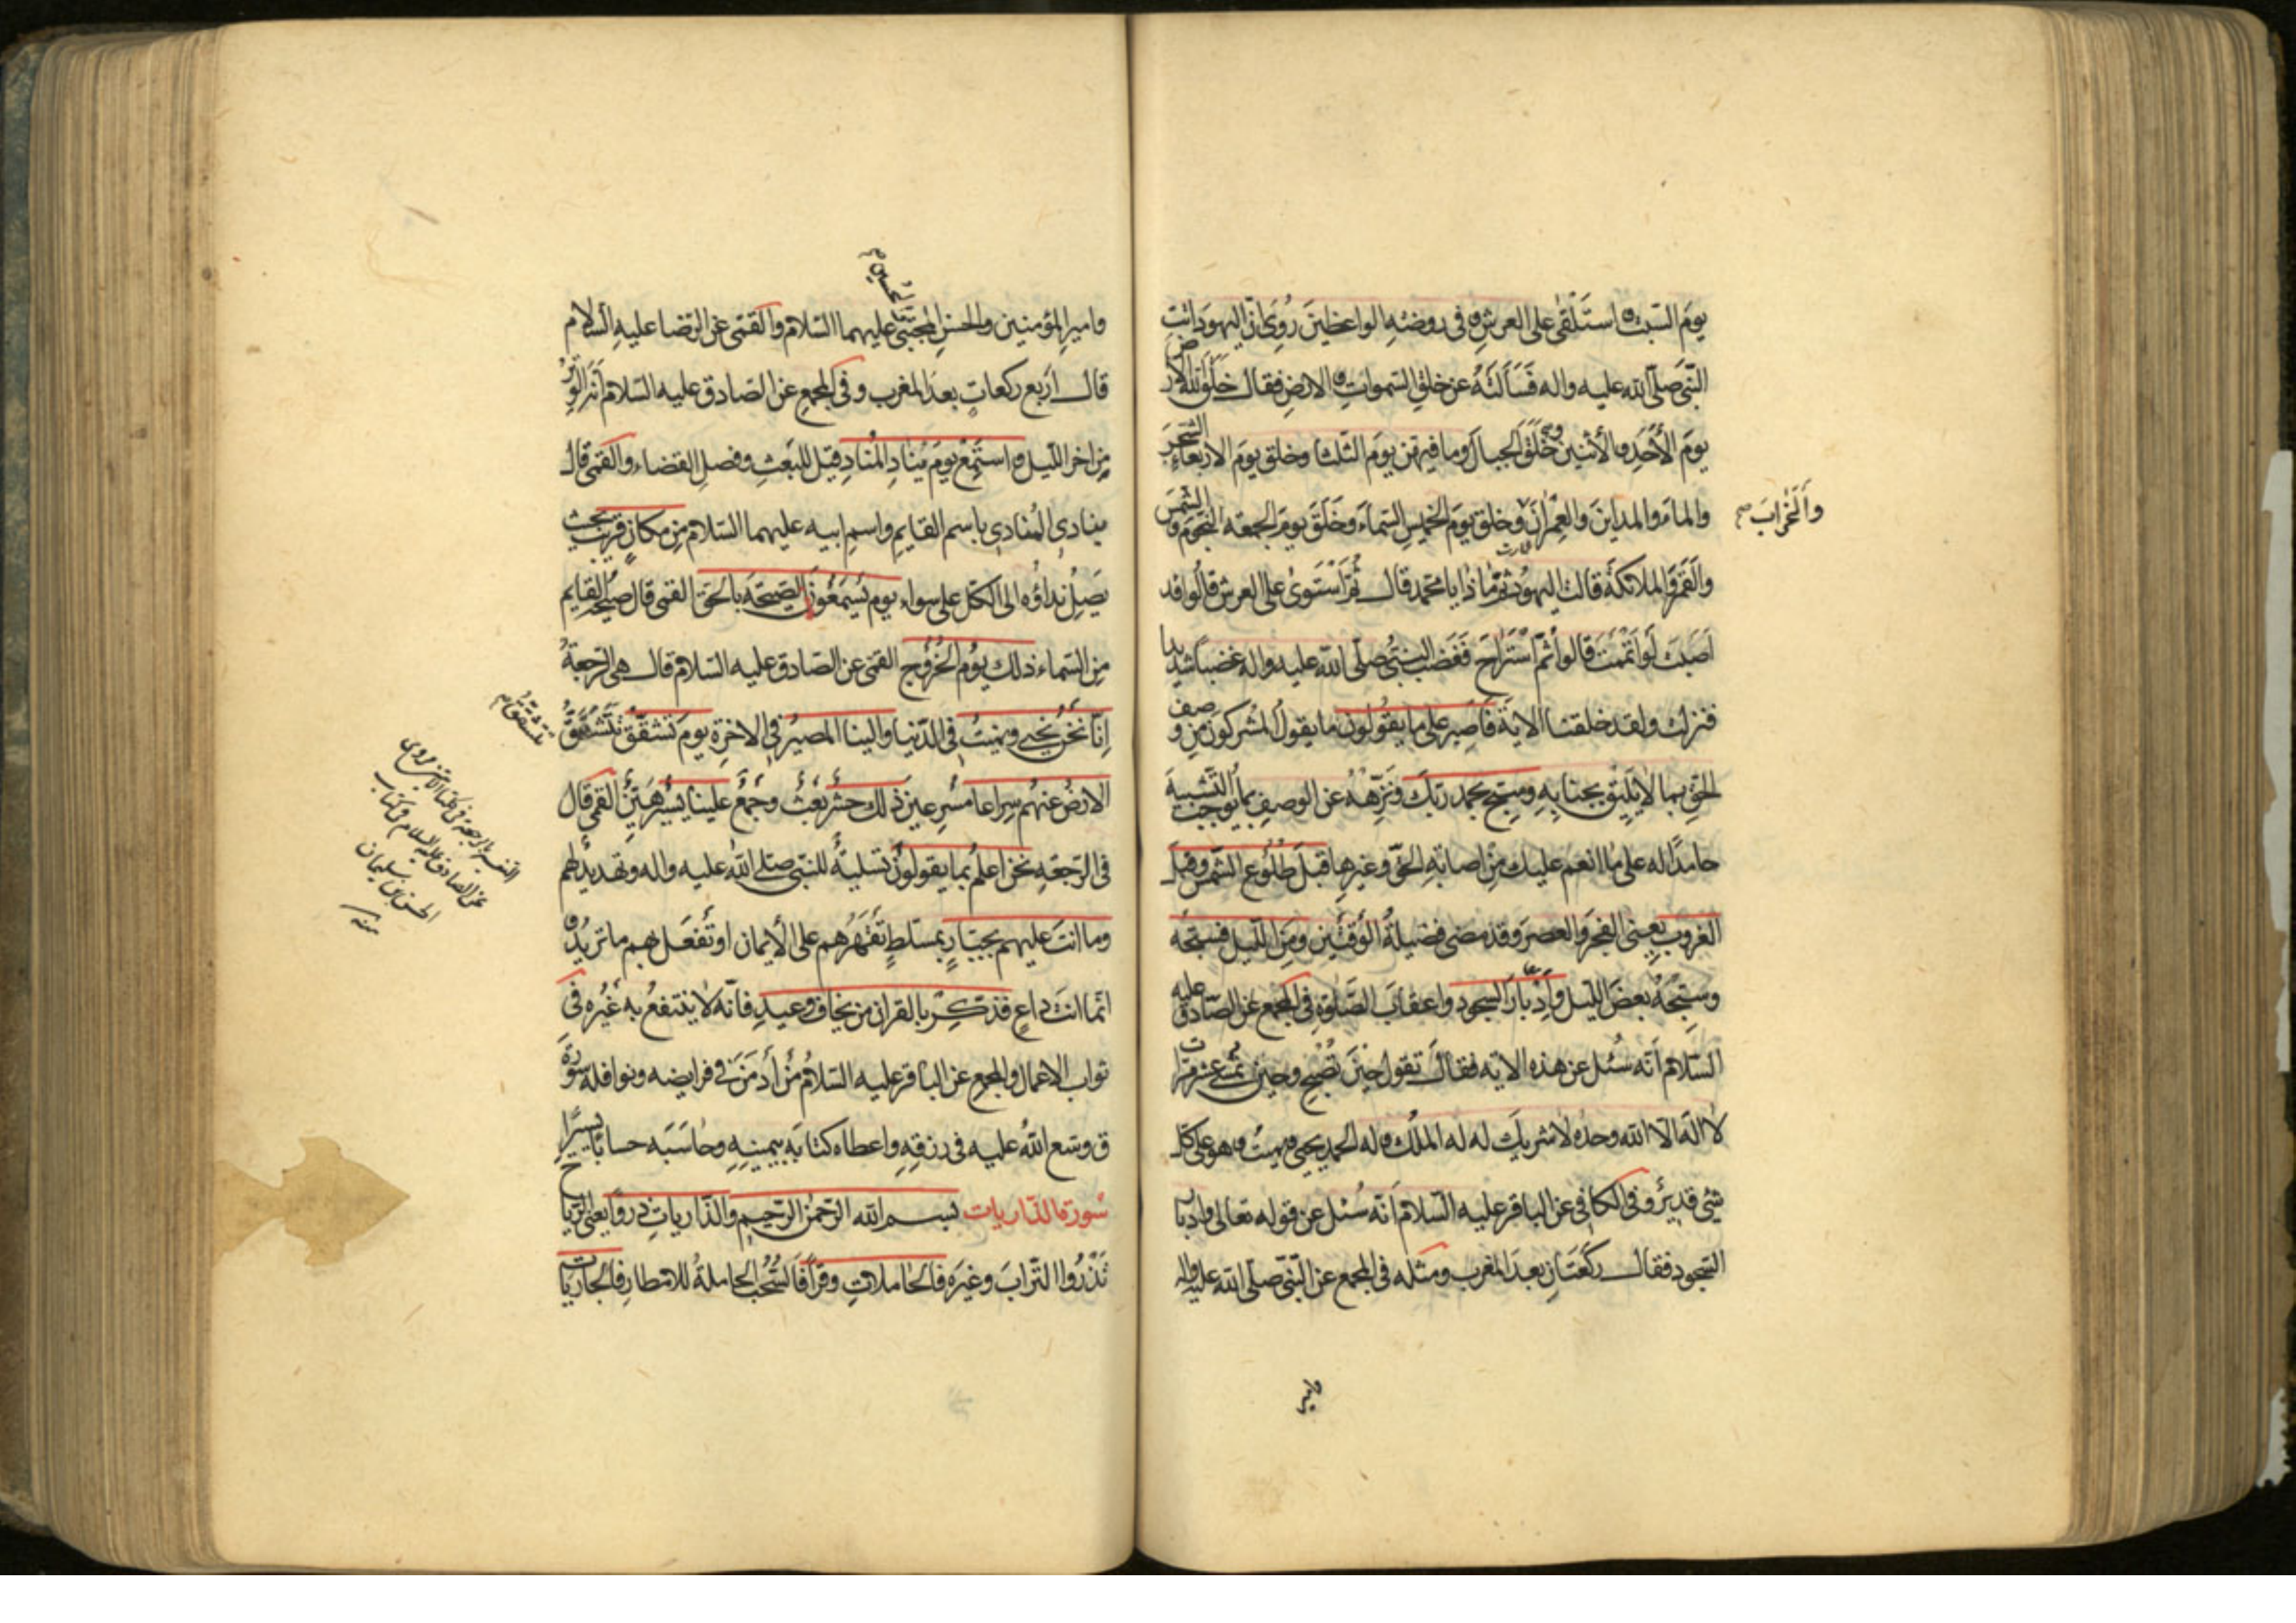 يوم السّبت و استلقى على العرش و في روضة الواعظين رُوِيَ انّ اليهودَ اتت
النّبيّ صلّى الله عليه واله فَسَأَلَتْهُ عن خلق السّموات و الارض فقال خَلَقَ الله الارض
يومَ الأحَدِ والأثنين وخَلَقَ الجبالَ وما فيهنّ يومَ الثلثا وخلق يوم الاربعاءِ الشجَرَ
والماءَ والمداينَ والعِمْرانَ وخلق يومَ الخميسِ السّماءَ وخَلَقَ يومَ الجمعة النّجومَ والشمسَ
والخَرابَ صح
والقَمَرَ والملائكة قالت اليهودُ ثمّ ماذا يا محمد قال ثُمّ اسْتَوىٰ على العرش قالوا قد
اَصَبْتَ لَو اَتْمَمْتَ قالوا ثمّ اسْتَراحَ فَغَضِبَ النبيّ صلّى الله عليه واله غضبًا شديدا
فنزلت ولقد خلقنا الاية فَاصبِر على ما يقُولُونَ ما يقولُ المشركون مِن وصف
الحقّ بما لا يَليق بجنابهِ وسَبّح بحمد ربّك ونَزِّهْهُ عن الوصف بما يُوجب التّشبيه
حامدًا له على ما انعم عليك مِن اصابةِ الحقّ وغيرها قبلَ طُلُوع الشّمس وقبلَ
الغروب يعنى الفجرَ والعصرَ وقد مضى فضيلةُ الوقتَين ومِنَ اللّيل فسبّحهُ
وسبّحْهُ بعضَ اللّيل وأدْبارَ السجود واعقابَ الصّلوٰةِ في المجمع عن الصّادق عليه
السّلام اَنّه سُئل عن هذه الاية فقال تقول حينَ تُصْبح وحينَ تُمسي عشر مرّات
لا اله الّا الله وحده لا شريك له له الملك و له الحمد يحيى و يميت و هو على كلّ
شيْئ قديرٌ وفي الكافى عن الباقر عليه السّلام اَنّه سُئل عن قوله تعالى وادبار
السّجود فقال ركعَتَانِ بعدَ المغرب ومثله في المجمع عن النّبيّ صلّى الله عليه واله
وامير
واميرِ المؤمنين والحَسَنِ المجتبى عليهما السّلام والقمّى عن الرّضا عليه السّلام
قال اَربع ركعاتٍ بعدَ المغرب وفى المجمع عن الصّادق عليه السّلام اَنّه الوَتْرُ
مِن اخر اللّيل و استَمِعْ يومَ يُنادِ المُنادِ قيل للبَعْثِ وفصلِ القضاء والقمّى قال
ينادى المُنادى باسم القايم واسمِ ابيه عليهما السّلام مِن مكانٍ قريبٍ بحيث
يَصِلُ نداؤُه الى الكلّ على سواء يوم يَسْمَعُونَ الصّيحَةَ بالحَقّ القمى قال صيحةُ القايم
مِن السّماء ذلك يَوْمُ الخُرُوج القمّى عن الصّادق عليه السّلام قال هى الرّجعةُ
اِنّا نَحْنُ نُحيى ونميتُ فى الدّنيا والينا المصيرُ فى الاخرةِ يومَ تشقّقُ تَتَشَقَّقُ
الارضُ عنهُم سِراعًا مُسْرِعينَ ذٰلك حَشْرٌ بَعْثٌ وجَمْعٌ علينا يَسيرٌ هَيّنٌ القمّى قال
فى الرّجْعَةِ نحن اعلمُ بما يقولونَ تَسليةٌ للنّبيّ صلّى الله عليه واله وتهديدٌ لهم
وما انتَ عليهم بجبّارٍ بمسلّطٍ تَقْهَرُهم على الأيمان او تَفعَل بهم ما تريدُ و
انّما انتَ داعٍ فذكّر بالقران من يخاف وعيدِ فانّه لا يَنتفعُ به غَيْرُه فى
ثواب الاعمال والمجمع عن الباقر عليه السّلام مَنْ أَدْمَنَ فى فرايضه ونوافله سُورَةَ
ق وسّع اللهُ عليه فى رزقِهِ واعطاه كتابَه بيمينِهِ وحاسَبَه حسابًا يسيرًا
سُورة الذّاريات بسم الله الرّحمٰن الرّحيم والذّارياتِ ذروًا يعنى الرّياح
تَذْرُوا التّرابَ وغيرَه فالحاملاتِ وقرًا فالسُّحُبُ الحاملةُ للامطار فالجاريات
تتشقّق
التفسير بالرجعة
عن الصادق عليه السلام فى كتاب
الحسن بن سليمان
منه